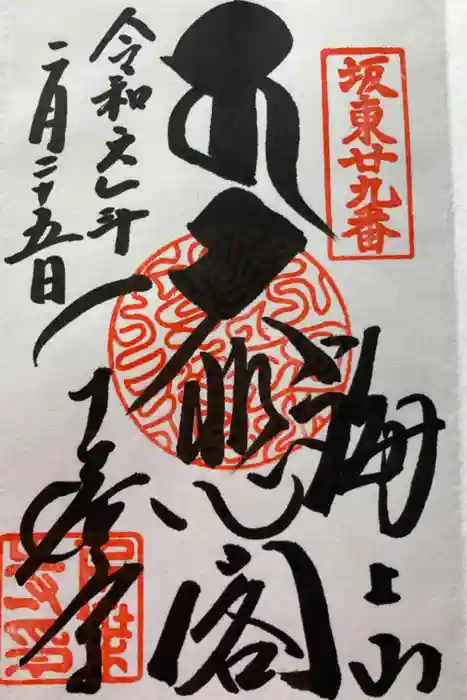 坂東廿九番
海上山
大悲閣
千葉寺
令和六年
二月二十五日